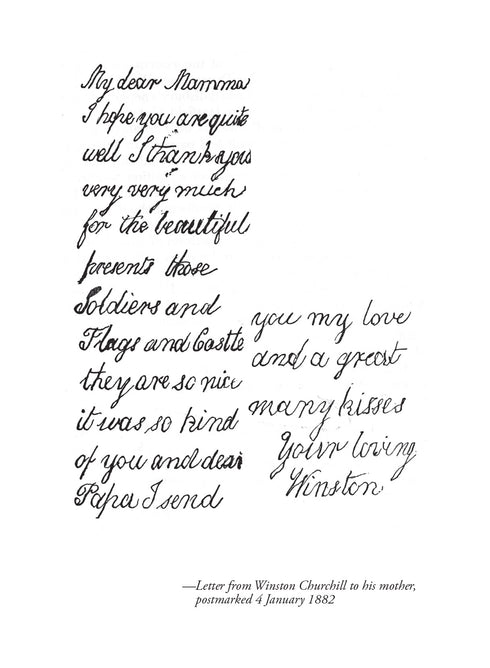 My dear Mamma
I hope you are quite
well I thank you
very very much
for the beautiful
presents those
Soldiers and
Flags and Castle
they are so nice
it was so kind
of you and dear
Papa I send
you my love
and a great
many kisses
Your loving
Winston
—Letter from Winston Churchill to his mother,
postmarked 4 January 1882